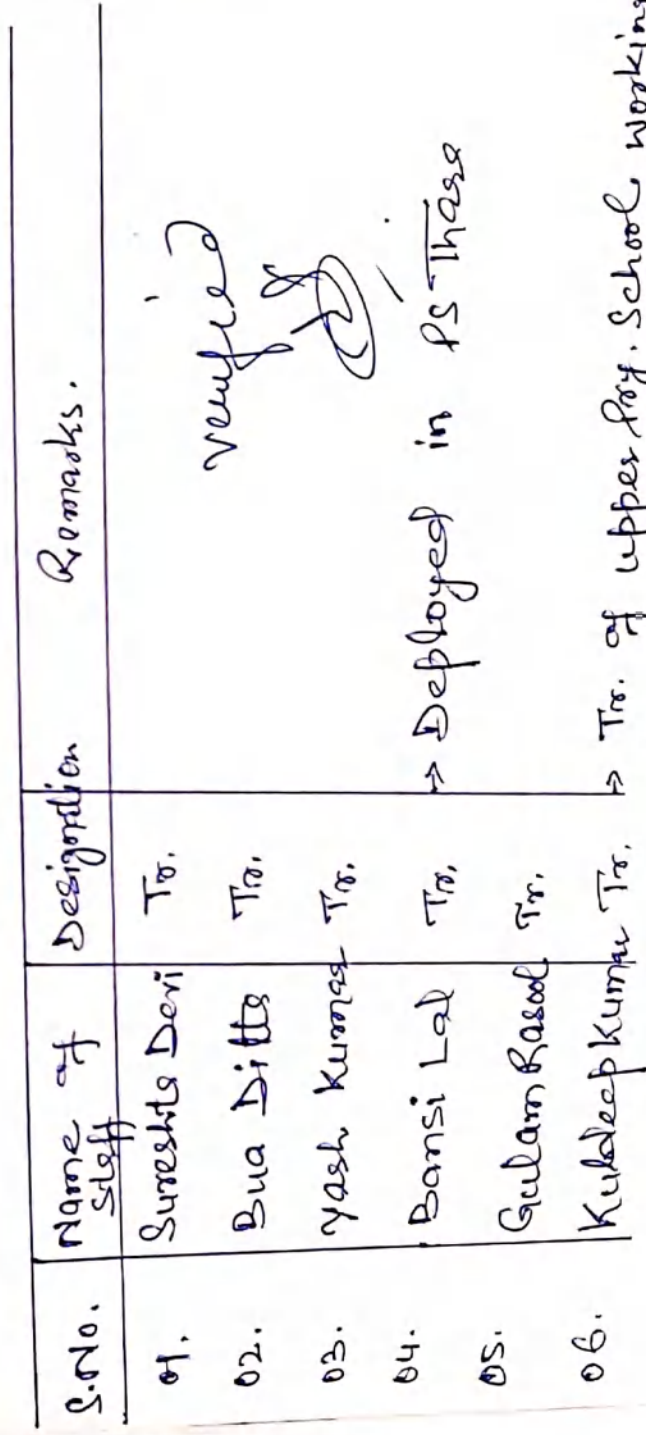 S.No. Name of Staff Designation Remarks.
01. Sureshta Devi Tr.
02. Bua Ditta Tr. verified
03. Yash Kumar Tr.
04. Bansi Lal Tr. → Deployed in PS Thara
05. Gulam Rasool Tr.
06. Kuldeep Kumar Tr. → Tr. of upper Pry. School working